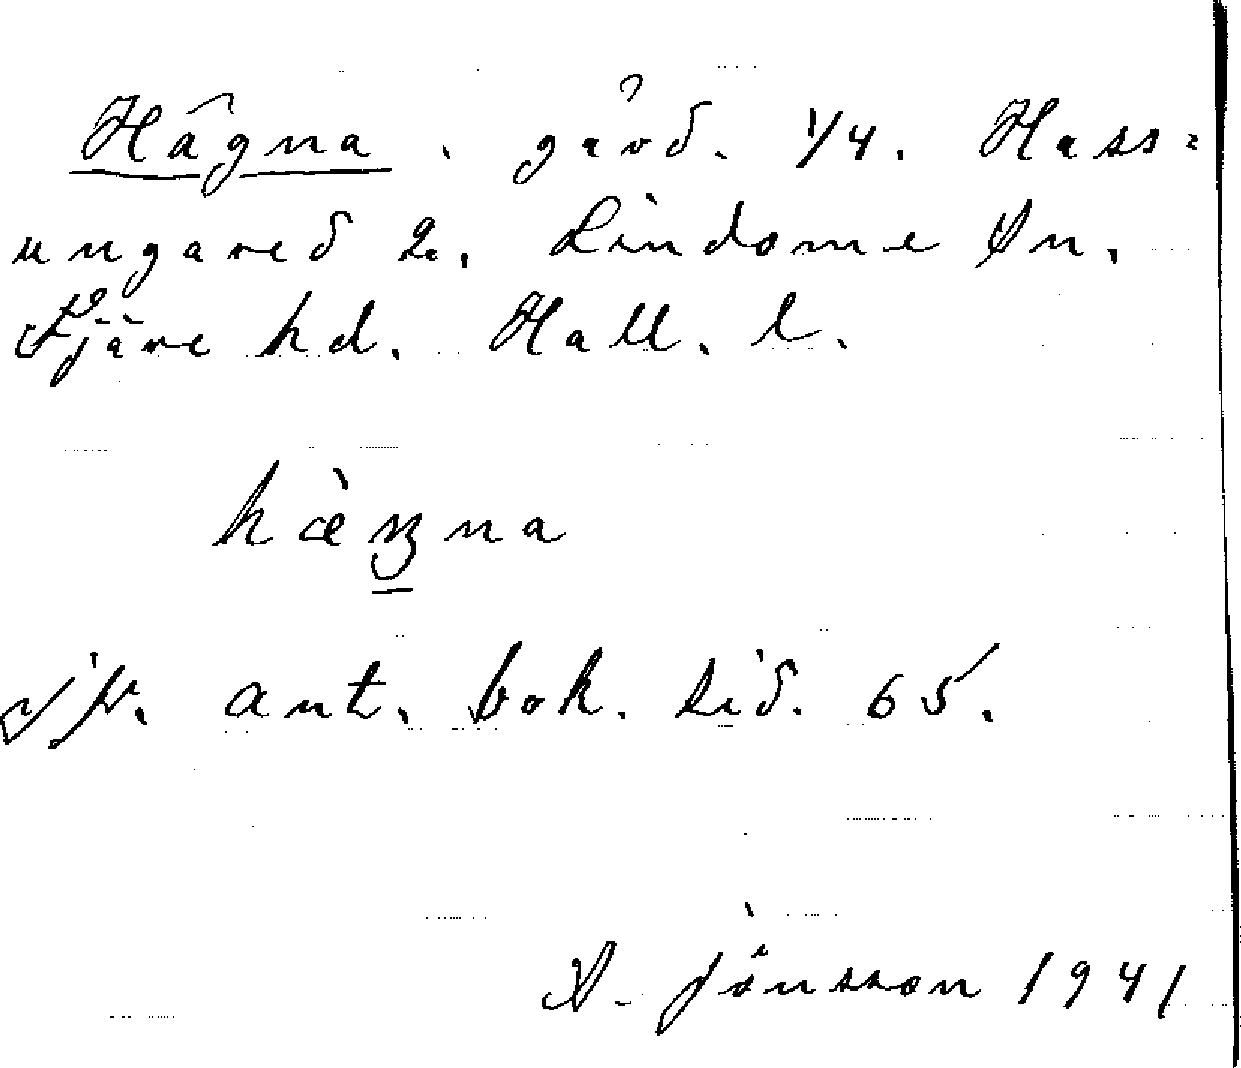 Hägna. gård. 1/4. Hass=
ungared 2. Lindome sn.
Fjäre hd. Hall. l.
hæ̀ŋna
jfr. ant. bok. sid. 65.
A. Jönsson 1941